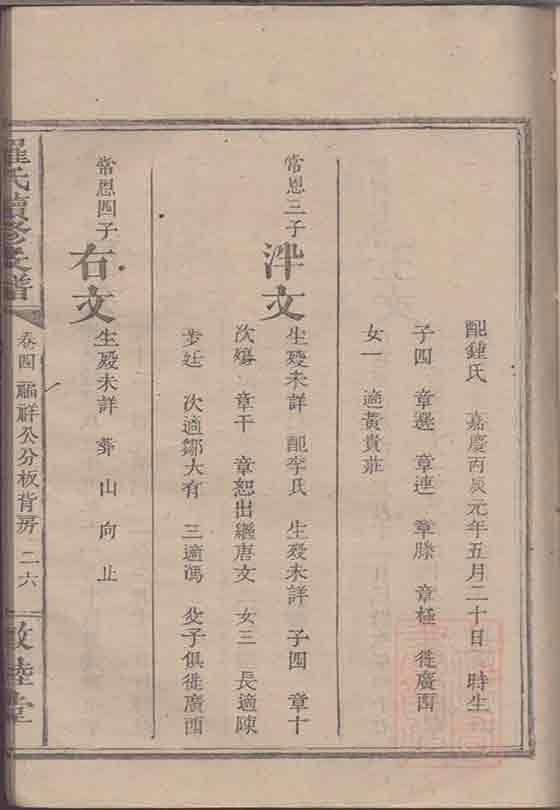 配鍾氏 嘉慶丙辰元年五月二十日 時生
子四 章選 章連 章滕 章極 徙廣西
女一 適黃貴莊
常恩三子 泮文 生歿未詳 配李氏 生歿未詳 子四 章十
次殤 章干 章恕出繼唐文 女三 長適陳
步廷 次適鄒大有 三適馮 父子俱徙廣西
常恩四子 右文 生歿未詳 葬 山 向 止
羅氏續修支譜
卷四 福祥公分板背房 二六
敦睦堂